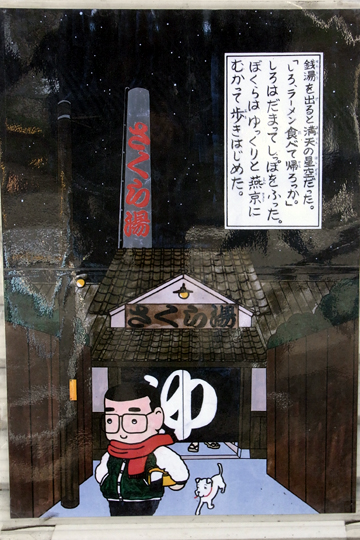 銭湯を出ると満天の星空だった。
「しろ、ラーメン食べて帰ろっか」
しろはだまってしっぽをふった。
ぼくらはゆっくりと燕京に
むかって歩きはじめた。
さくら湯
さくら湯
ゆ